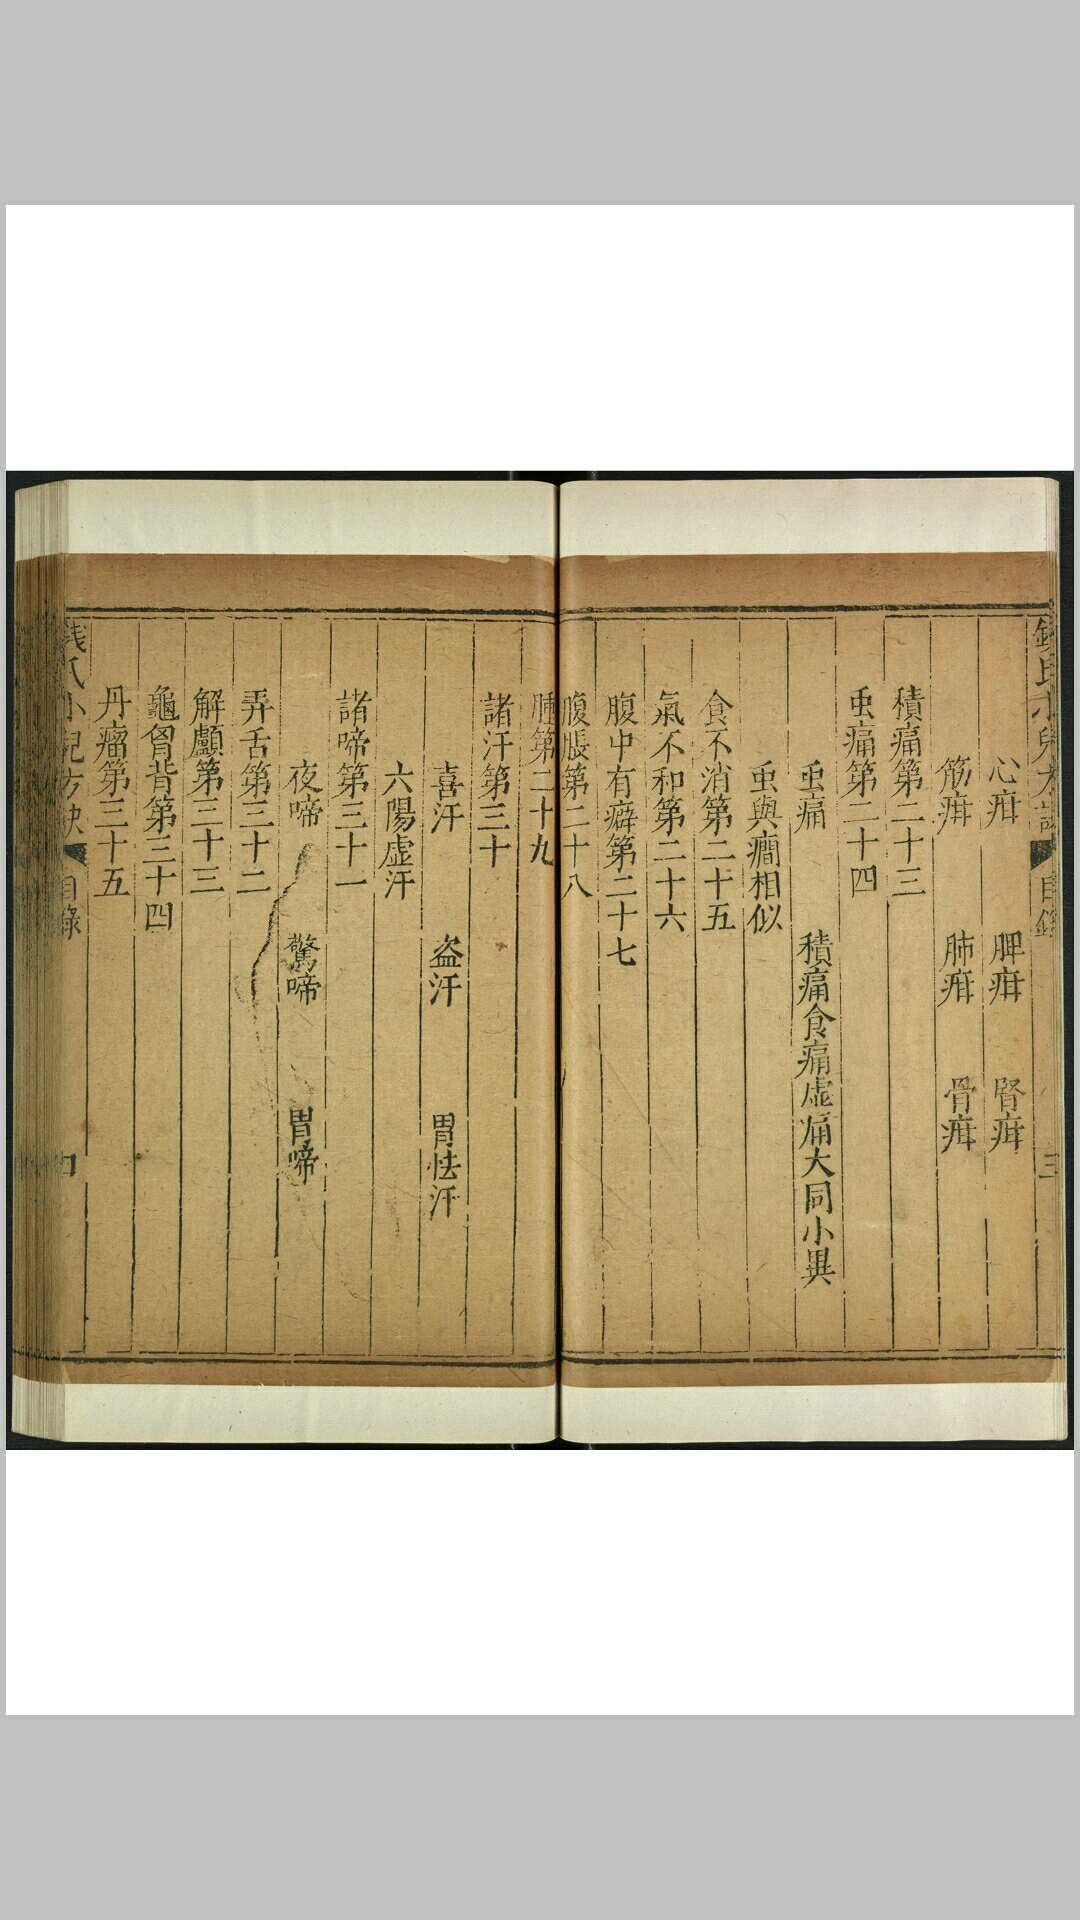 目錄 三
心疳 脾疳 腎疳
筋疳 肺疳 骨疳
積痛第二十三
虫痛第二十四
虫痛 積痛食痛虛痛大同小異
虫與癎相似
食不消第二十五
氣不和第二十六
腹中有癖第二十七
腹脹第二十八
腫第二十九
諸汗第三十
喜汗 盗汗 胃怯汗
六陽虛汗
諸啼第三十一
夜啼 驚啼 胃啼
弄舌第三十二
解顱第三十三
龜胷背第三十四
丹瘤第三十五
錢氏小兒方訣 目錄